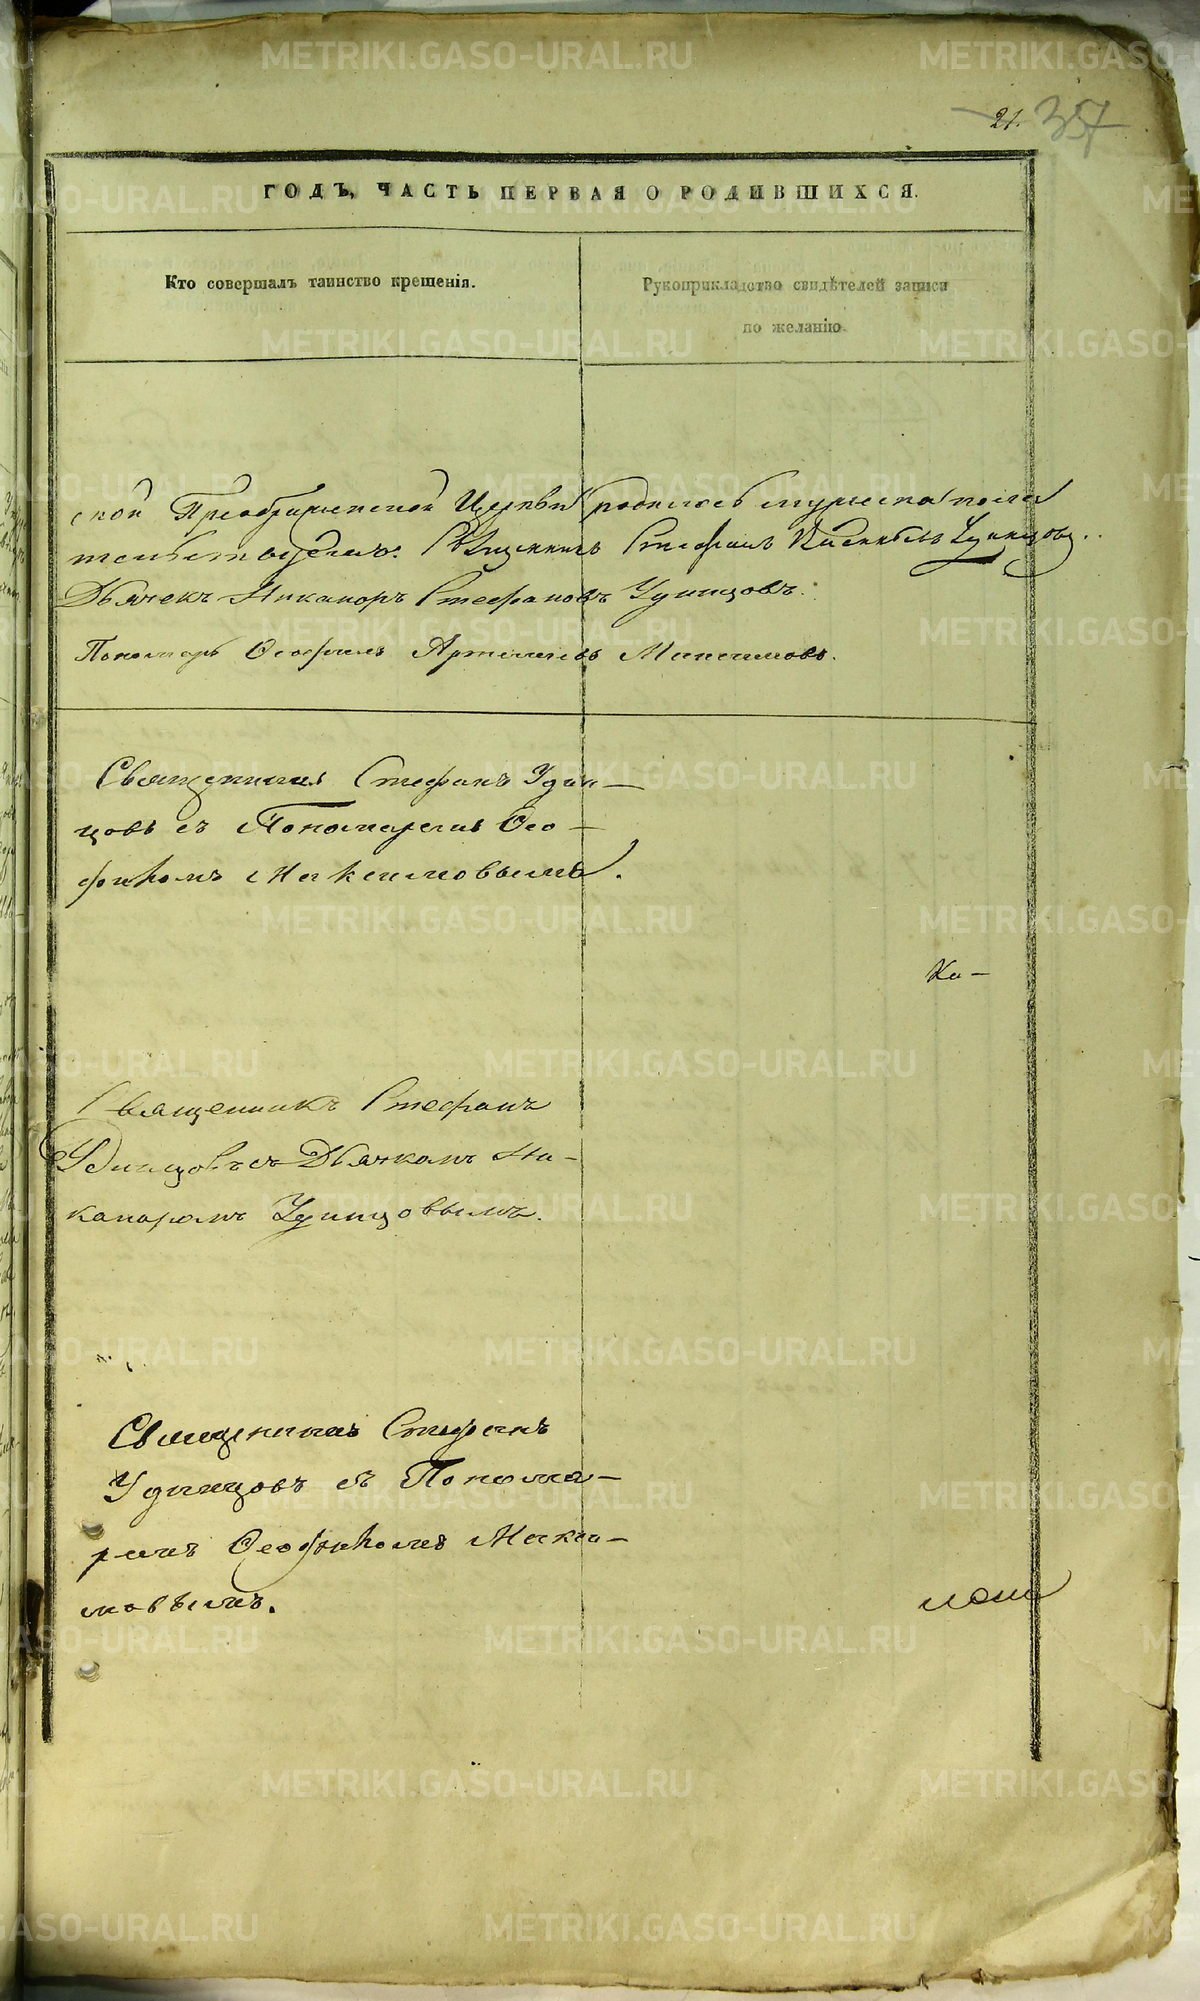 21. 37
ГОДЪ, ЧАСТЬ ПЕРВАЯ О РОДИВШИХСЯ.
Кто совершалъ таинство крещенія.
Рукоприкладство свидѣтелей записи
по желанію.
ской Преображенской Церкви родилось мужеска пола
свидѣтельствуемъ: Священникъ Стефанъ Удинцовъ
Дьячекъ Никаноръ Стефановъ Удинцовъ.
Пономарь Ѳеофилъ Артемьевъ Максимовъ.
Священникъ Стефанъ Удин-
цовъ съ Пономаремъ Ѳео-
филомъ Максимовымъ.
Ка-
Священникъ Стефанъ
Удинцовъ съ Дьячкомъ Ни-
каноромъ Удинцовымъ.
Священникъ Стефанъ
Удинцовъ съ Понома-
ремъ Ѳеофиломъ Макси-
мовымъ.
METRIKI.GASO-URAL.RU